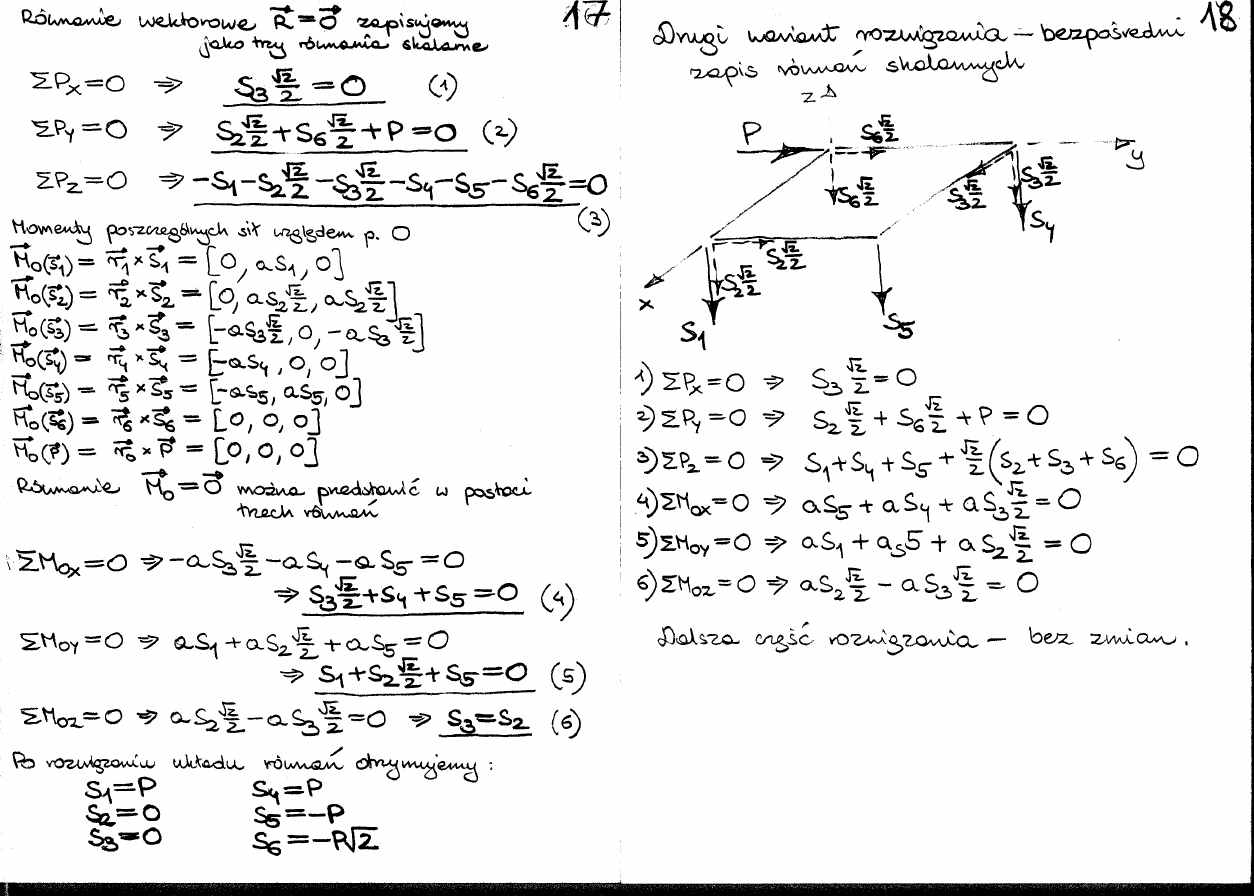 17
Równanie wektorowe R⃗=0⃗ zapisujemy
jako trzy równania skalarne
ΣPx=0 ⇒ S3 √2/2 = 0 (1)
ΣPy=0 ⇒ S2 √2/2 + S6 √2/2 + P = 0 (2)
ΣPz=0 ⇒ -S1-S2 √2/2 -S3 √2/2 -S4-S5-S6 √2/2 =0
(3)
Momenty poszczególnych sił względem p. O
M⃗o(S⃗1) = r⃗1 × S⃗1 = [0, aS1, 0]
M⃗o(S⃗2) = r⃗2 × S⃗2 = [0, aS2 √2/2, aS2 √2/2]
M⃗o(S⃗3) = r⃗3 × S⃗3 = [-aS3 √2/2, 0, -aS3 √2/2]
M⃗o(S⃗4) = r⃗4 × S⃗4 = [-aS4, 0, 0]
M⃗o(S⃗5) = r⃗5 × S⃗5 = [-aS5, aS5, 0]
M⃗o(S⃗6) = r⃗6 × S⃗6 = [0, 0, 0]
M⃗o(P⃗) = r⃗6 × P⃗ = [0, 0, 0]
Równanie M⃗o=0⃗ można przedstawić w postaci
trzech równań
ΣMox=0 ⇒ -aS3 √2/2 -aS4 -aS5 =0
⇒ S3 √2/2 +S4 +S5 =0 (4)
ΣMoy=0 ⇒ aS1+aS2 √2/2 +aS5 =0
⇒ S1+S2 √2/2 +S5=0 (5)
ΣMoz=0 ⇒ aS2 √2/2 -aS3 √2/2 =0 ⇒ S3=S2 (6)
Po rozwiązaniu układu równań otrzymujemy :
S1=P S4=P
S2=0 S5=-P
S3=0 S6=-P√2
18
Drugi wariant rozwiązania – bezpośredni
zapis równań skalarnych
z
P
S6 √2/2
y
S6 √2/2
S3 √2/2
S3 √2/2
S4
S2 √2/2
S2 √2/2
x
S1
S5
1) ΣPx=0 ⇒ S3 √2/2 = 0
2) ΣPy=0 ⇒ S2 √2/2 + S6 √2/2 + P = 0
3) ΣPz=0 ⇒ S1+S4+S5+ √2/2 (S2+S3+S6) = 0
4) ΣMox=0 ⇒ aS5 + aS4 + aS3 √2/2 = 0
5) ΣMoy=0 ⇒ aS1 + as5 + aS2 √2/2 = 0
6) ΣMoz=0 ⇒ aS2 √2/2 - aS3 √2/2 = 0
Dalsza część rozwiązania – bez zmian.